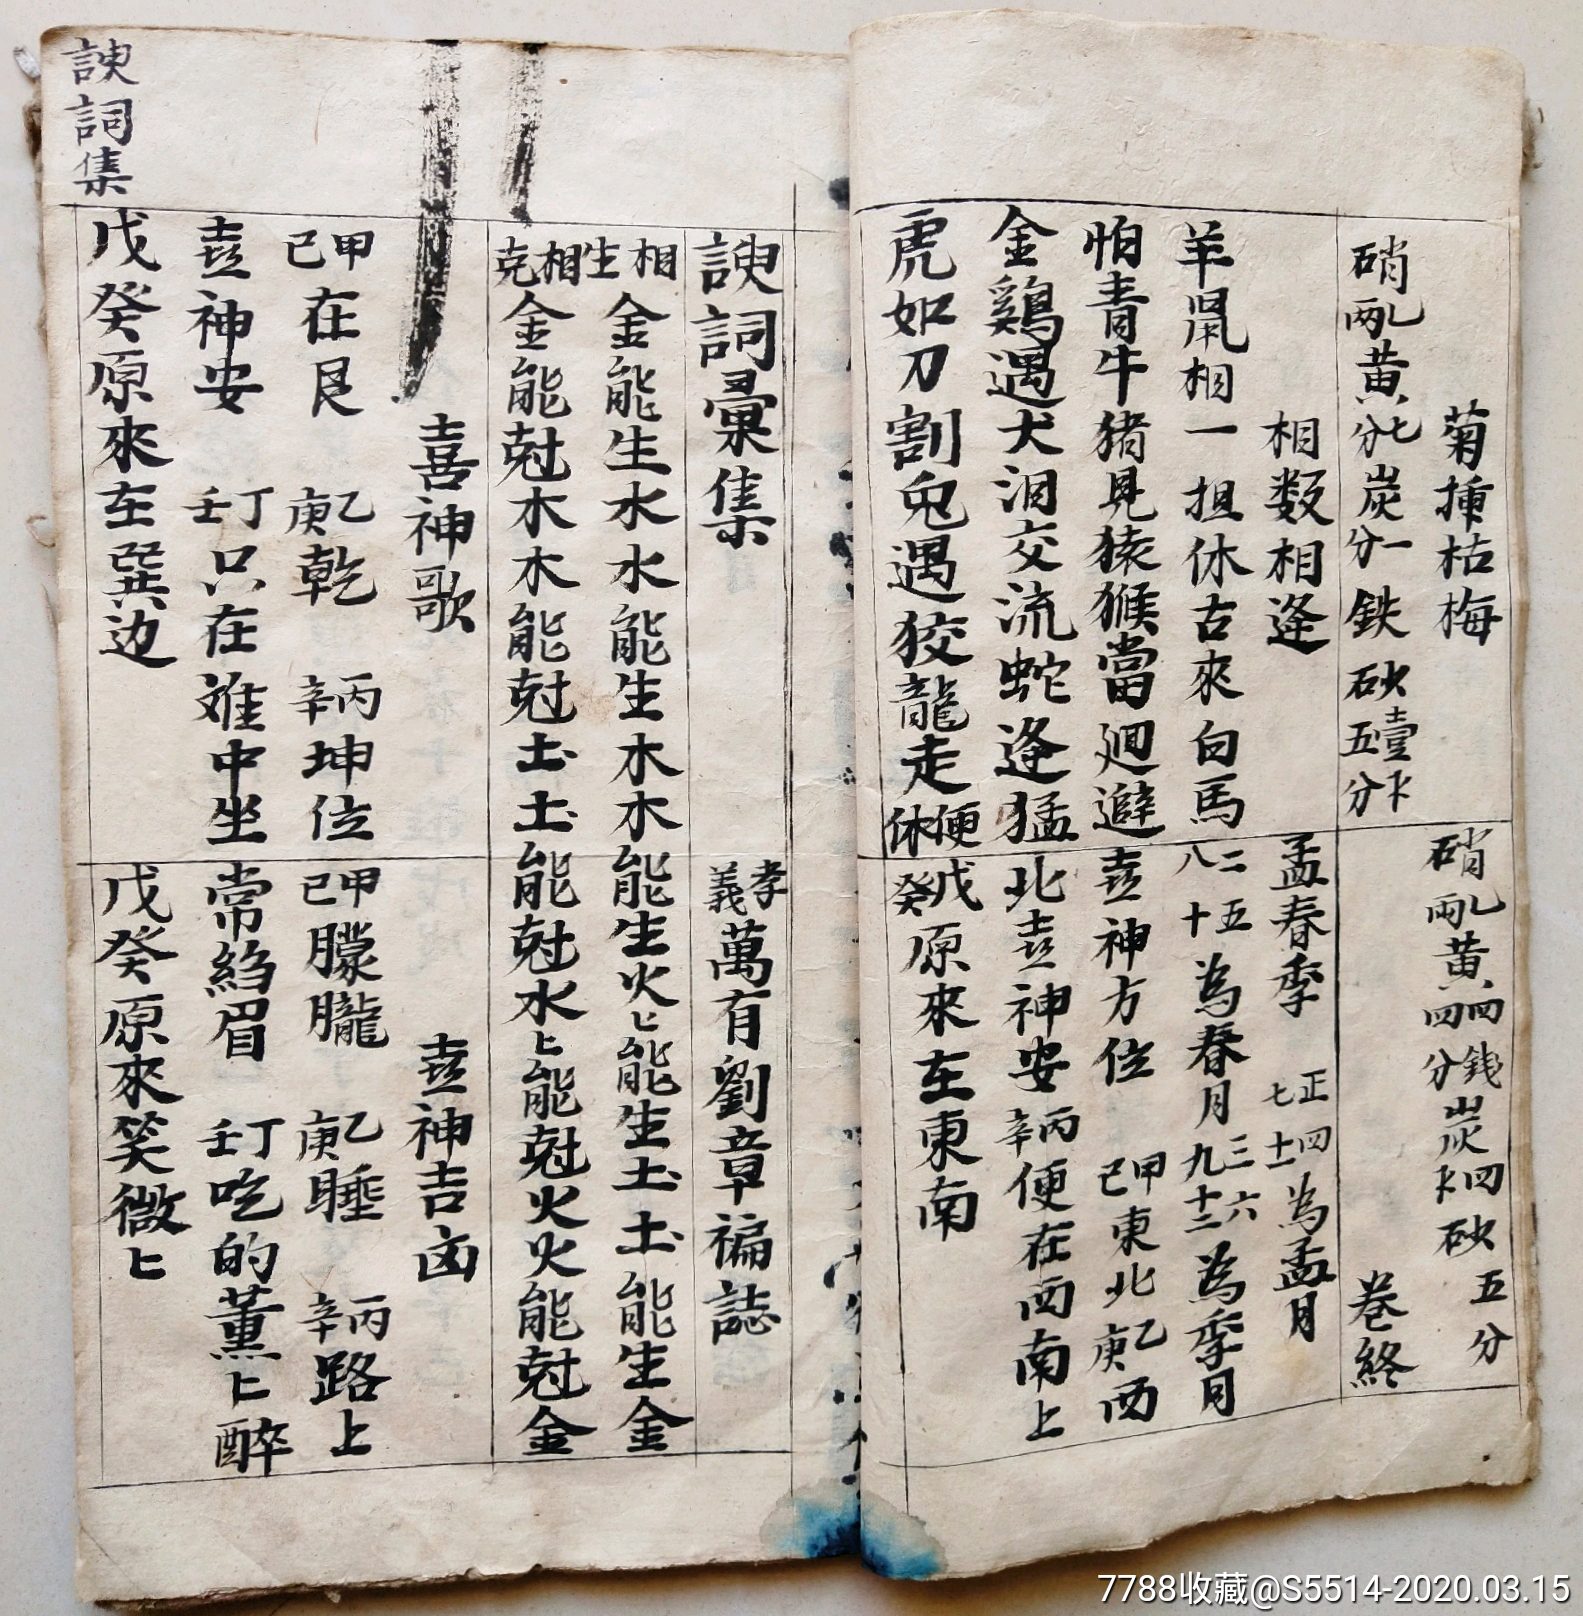 菊揰枯梅
硝乣兩黄七分炭一分鉄砂壹卞五分
相数相逢
羊鼠相一担休古來白馬
怕青牛猪見猿猴當廻避
金鷄遇犬泪交流蛇逢猛
虎如刀割兎遇狡龍走便休
硝乣兩黄四钱四分炭四卞砂五分
卷終
孟春季 正七四十為孟月
二八五十一為春月三九六十二為季月
壴神方位 甲己東北乙庚西
北壴神安丙辛便在西南上
戊癸原來在東南
諛詞彙集
孝義萬有劉章褔誌
相生金能生水水能生木木能生火匕能生土土能生金
相克金能尅木木能尅土土能尅水匕能尅火火能尅金
喜神歌
甲己在艮 乙庚乾 丙辛坤位
壴神安 丁壬只在难中坐
戊癸原來在巽边
壴神吉凶
甲己朦朧 乙庚睡 丙辛路上
常縐眉 丁壬吃的薰匕醉
戊癸原來笑微匕
諛詞集
7788收藏@S5514-2020.03.15